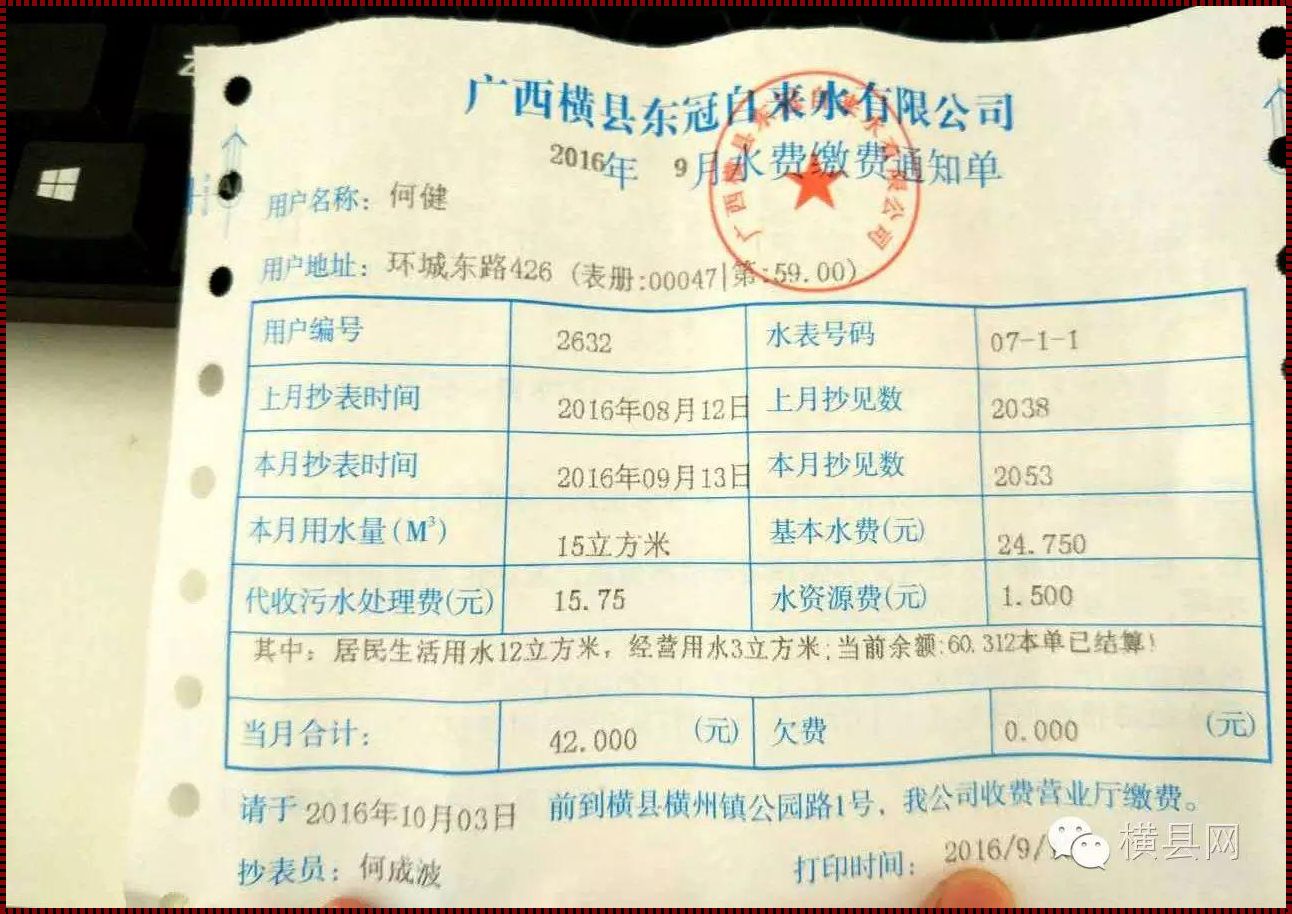 广西横县东冠自来水有限公司
2016年 9月水费缴费通知单
广西横县东冠自来水有限公司
用户名称：何健
用户地址：环城东路426 (表册:00047|第:59.00)
用户编号 2632 水表号码 07-1-1
上月抄表时间 2016年08月12日 上月抄见数 2038
本月抄表时间 2016年09月13日 本月抄见数 2053
本月用水量(M³) 15立方米 基本水费(元) 24.750
代收污水处理费(元) 15.75 水资源费(元) 1.500
其中：居民生活用水12立方米，经营用水3立方米;当前余额:60.312本单已结算!
当月合计： 42.000 (元) 欠费 0.000 (元)
请于 2016年10月03日 前到横县横州镇公园路1号，我公司收费营业厅缴费。
抄表员：何成波 打印时间：2016/9/
横县网